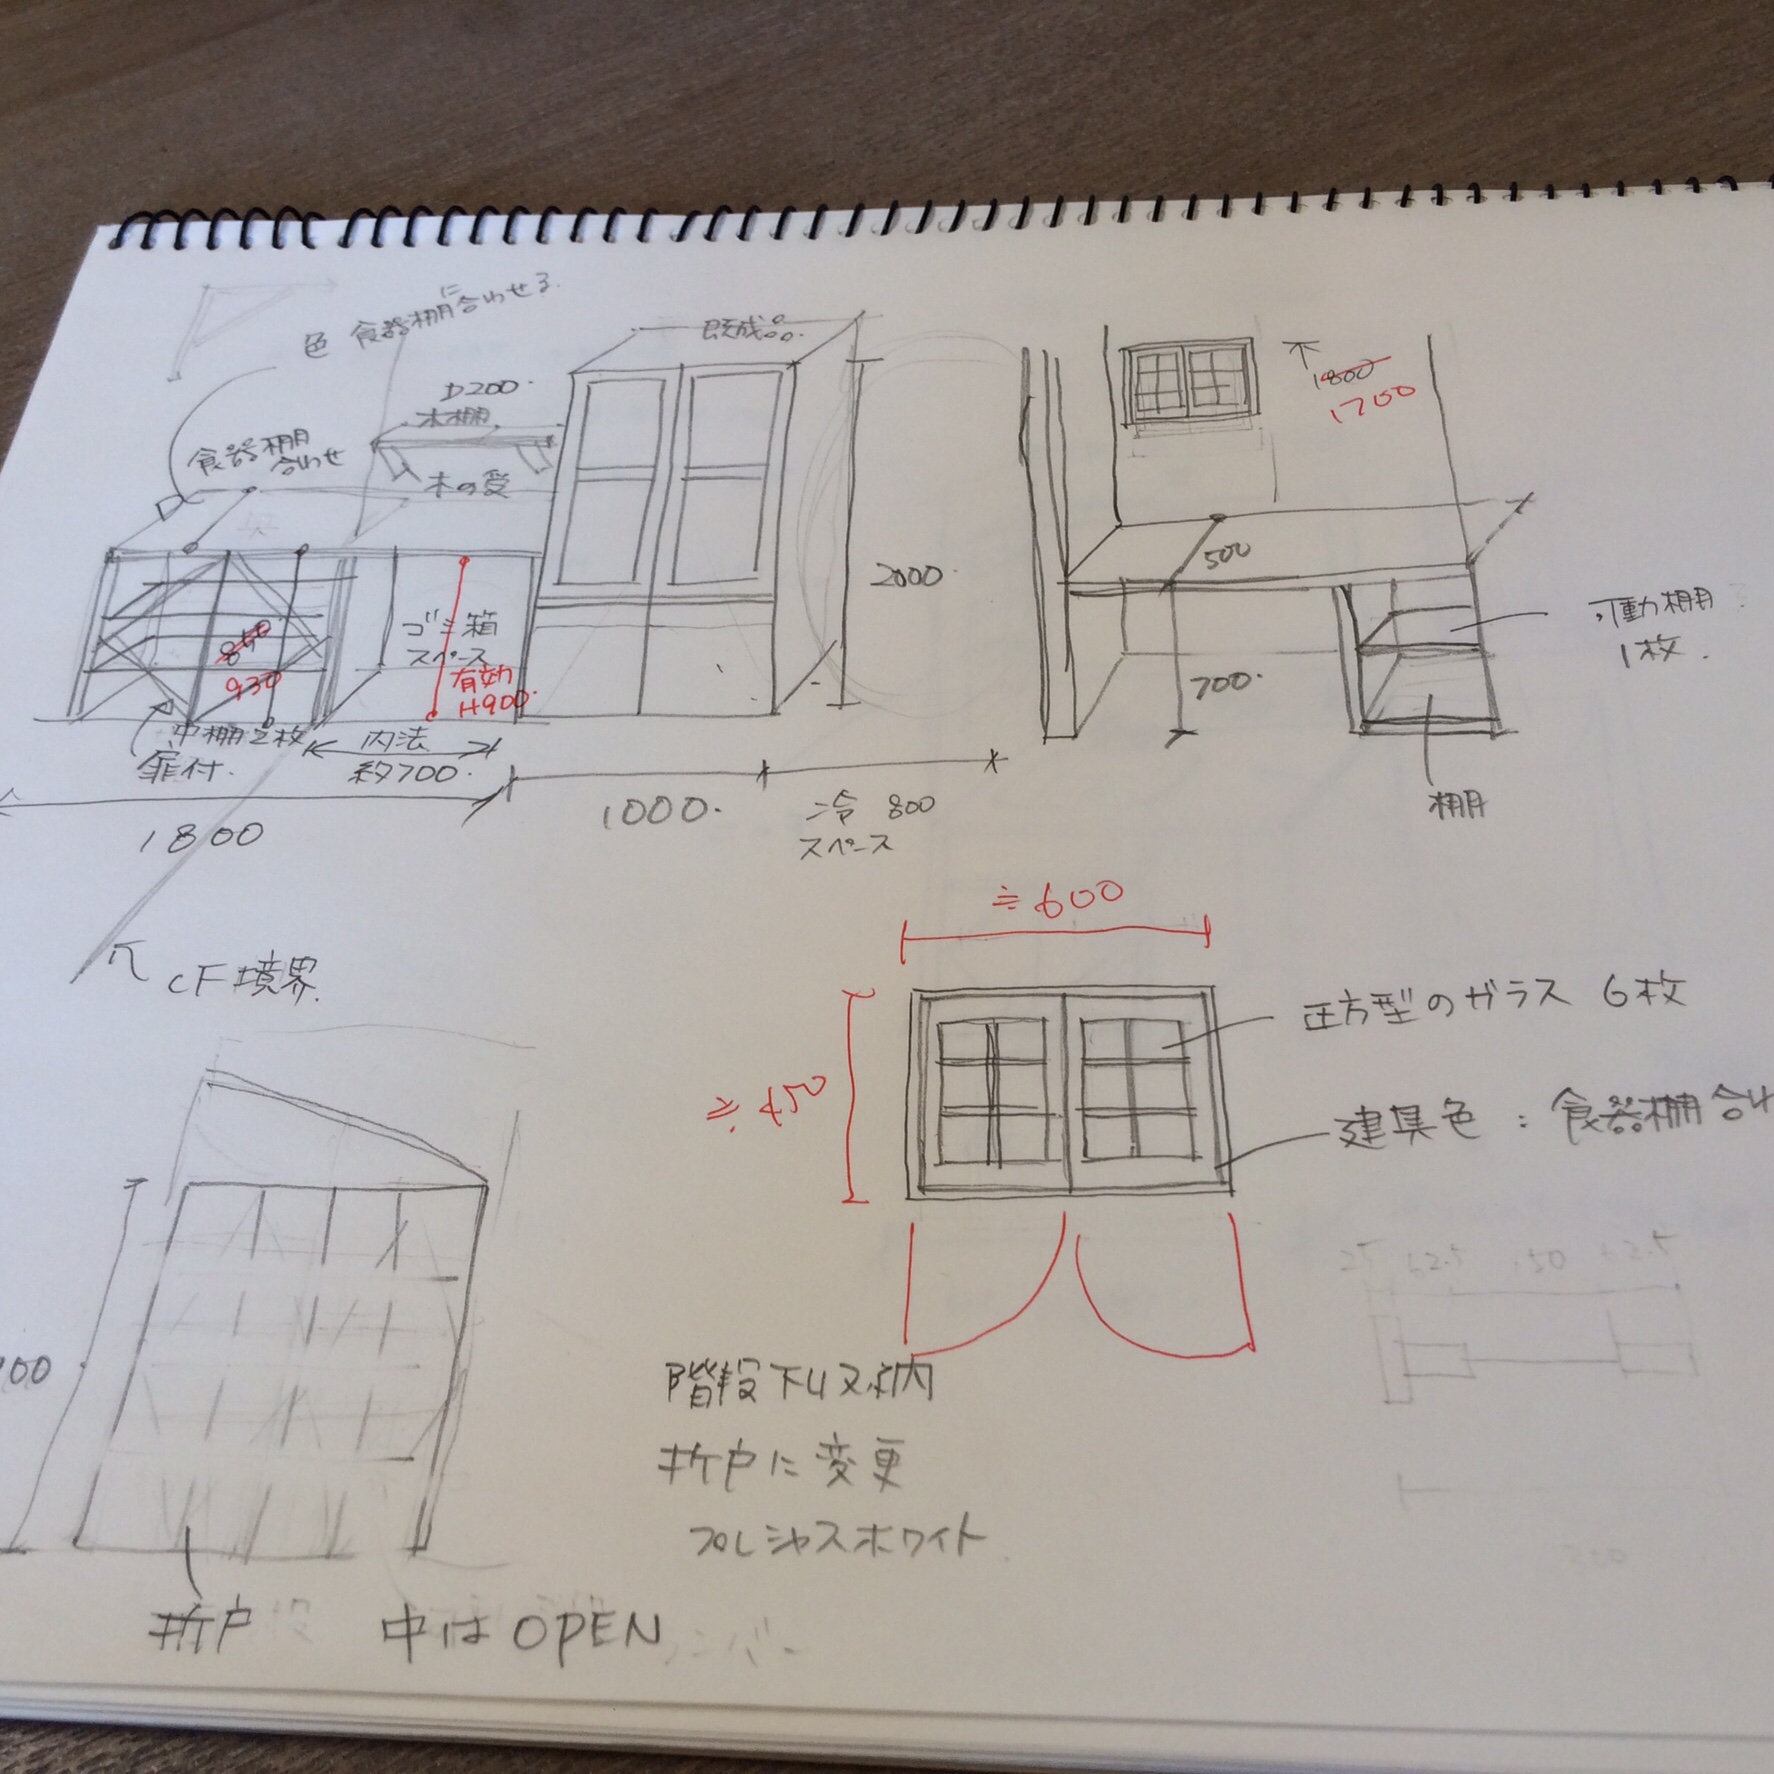 色 食器棚に合わせる
既成品
D200
木棚
木の受
食器棚
合わせ
2000
850
930
ゴミ箱
スペース
有効
H900
中棚2枚
扉付
内法
約700
1800
1000
冷 800
スペース
CF境界
1800
1700
500
700
可動棚
1枚
棚
≒600
≒450
正方型のガラス 6枚
建具色：食器棚合わ
階段下収納
折戸に変更
プレシャスホワイト
00
折戸 中はOPEN